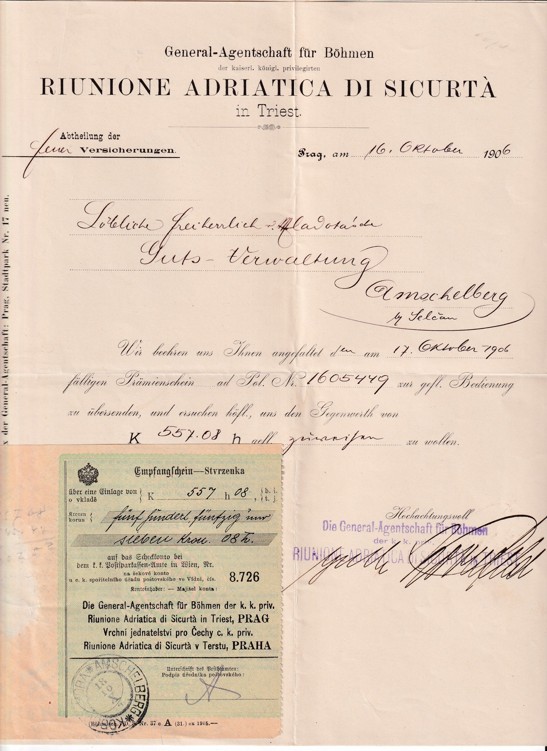 General-Agentschaft für Böhmen
der kaiserl. königl. privilegirten
RIUNIONE ADRIATICA DI SICURTÀ
in Triest.
Abtheilung der
feuer Versicherungen.
Prag, am 16. Oktober 1906
Löbliche freiherrlich
Guts-Verwaltung
Amschelberg
Selčan
der General-Agentschaft: Prag, Stadtpark Nr. 17 neu.
Wir beehren uns Ihnen angefaltet den am 17. Oktober 1906
fälligen Prämienschein ad Pol. Nr. 1605449 zur gefl. Bedienung
zu übersenden, und ersuchen höfl. uns den Gegenwerth von
K 557.08 h gefl. zuweisen zu wollen.
Hochachtungsvoll
Die General-Agentschaft für Böhmen
der k. k. priv.
RIUNIONE ADRIATICA DI SICURTÀ IN TRIEST
Empfangschein—Stvrzenka
über eine Einlage von
o vkladě
K 557 h 08
fünf hundert fünfzig und
sieben Kron. 08 h.
auf das Scheckkonto bei
dem k. k. Postsparkassen-Amte in Wien, Nr.
na šekové konto
u c. k. spořitelního úřadu poštovského ve Vídni, čís.
8.726
Kontoinhaber: — Majitel konta:
Die General-Agentschaft für Böhmen der k. k. priv.
Riunione Adriatica di Sicurtà in Triest, PRAG
Vrchní jednatelství pro Čechy c. k. priv.
Riunione Adriatica di Sicurtà v Terstu, PRAHA
Unterschrift des Postbeamten:
Podpis úředníka poštovského:
AMSCHELBERG